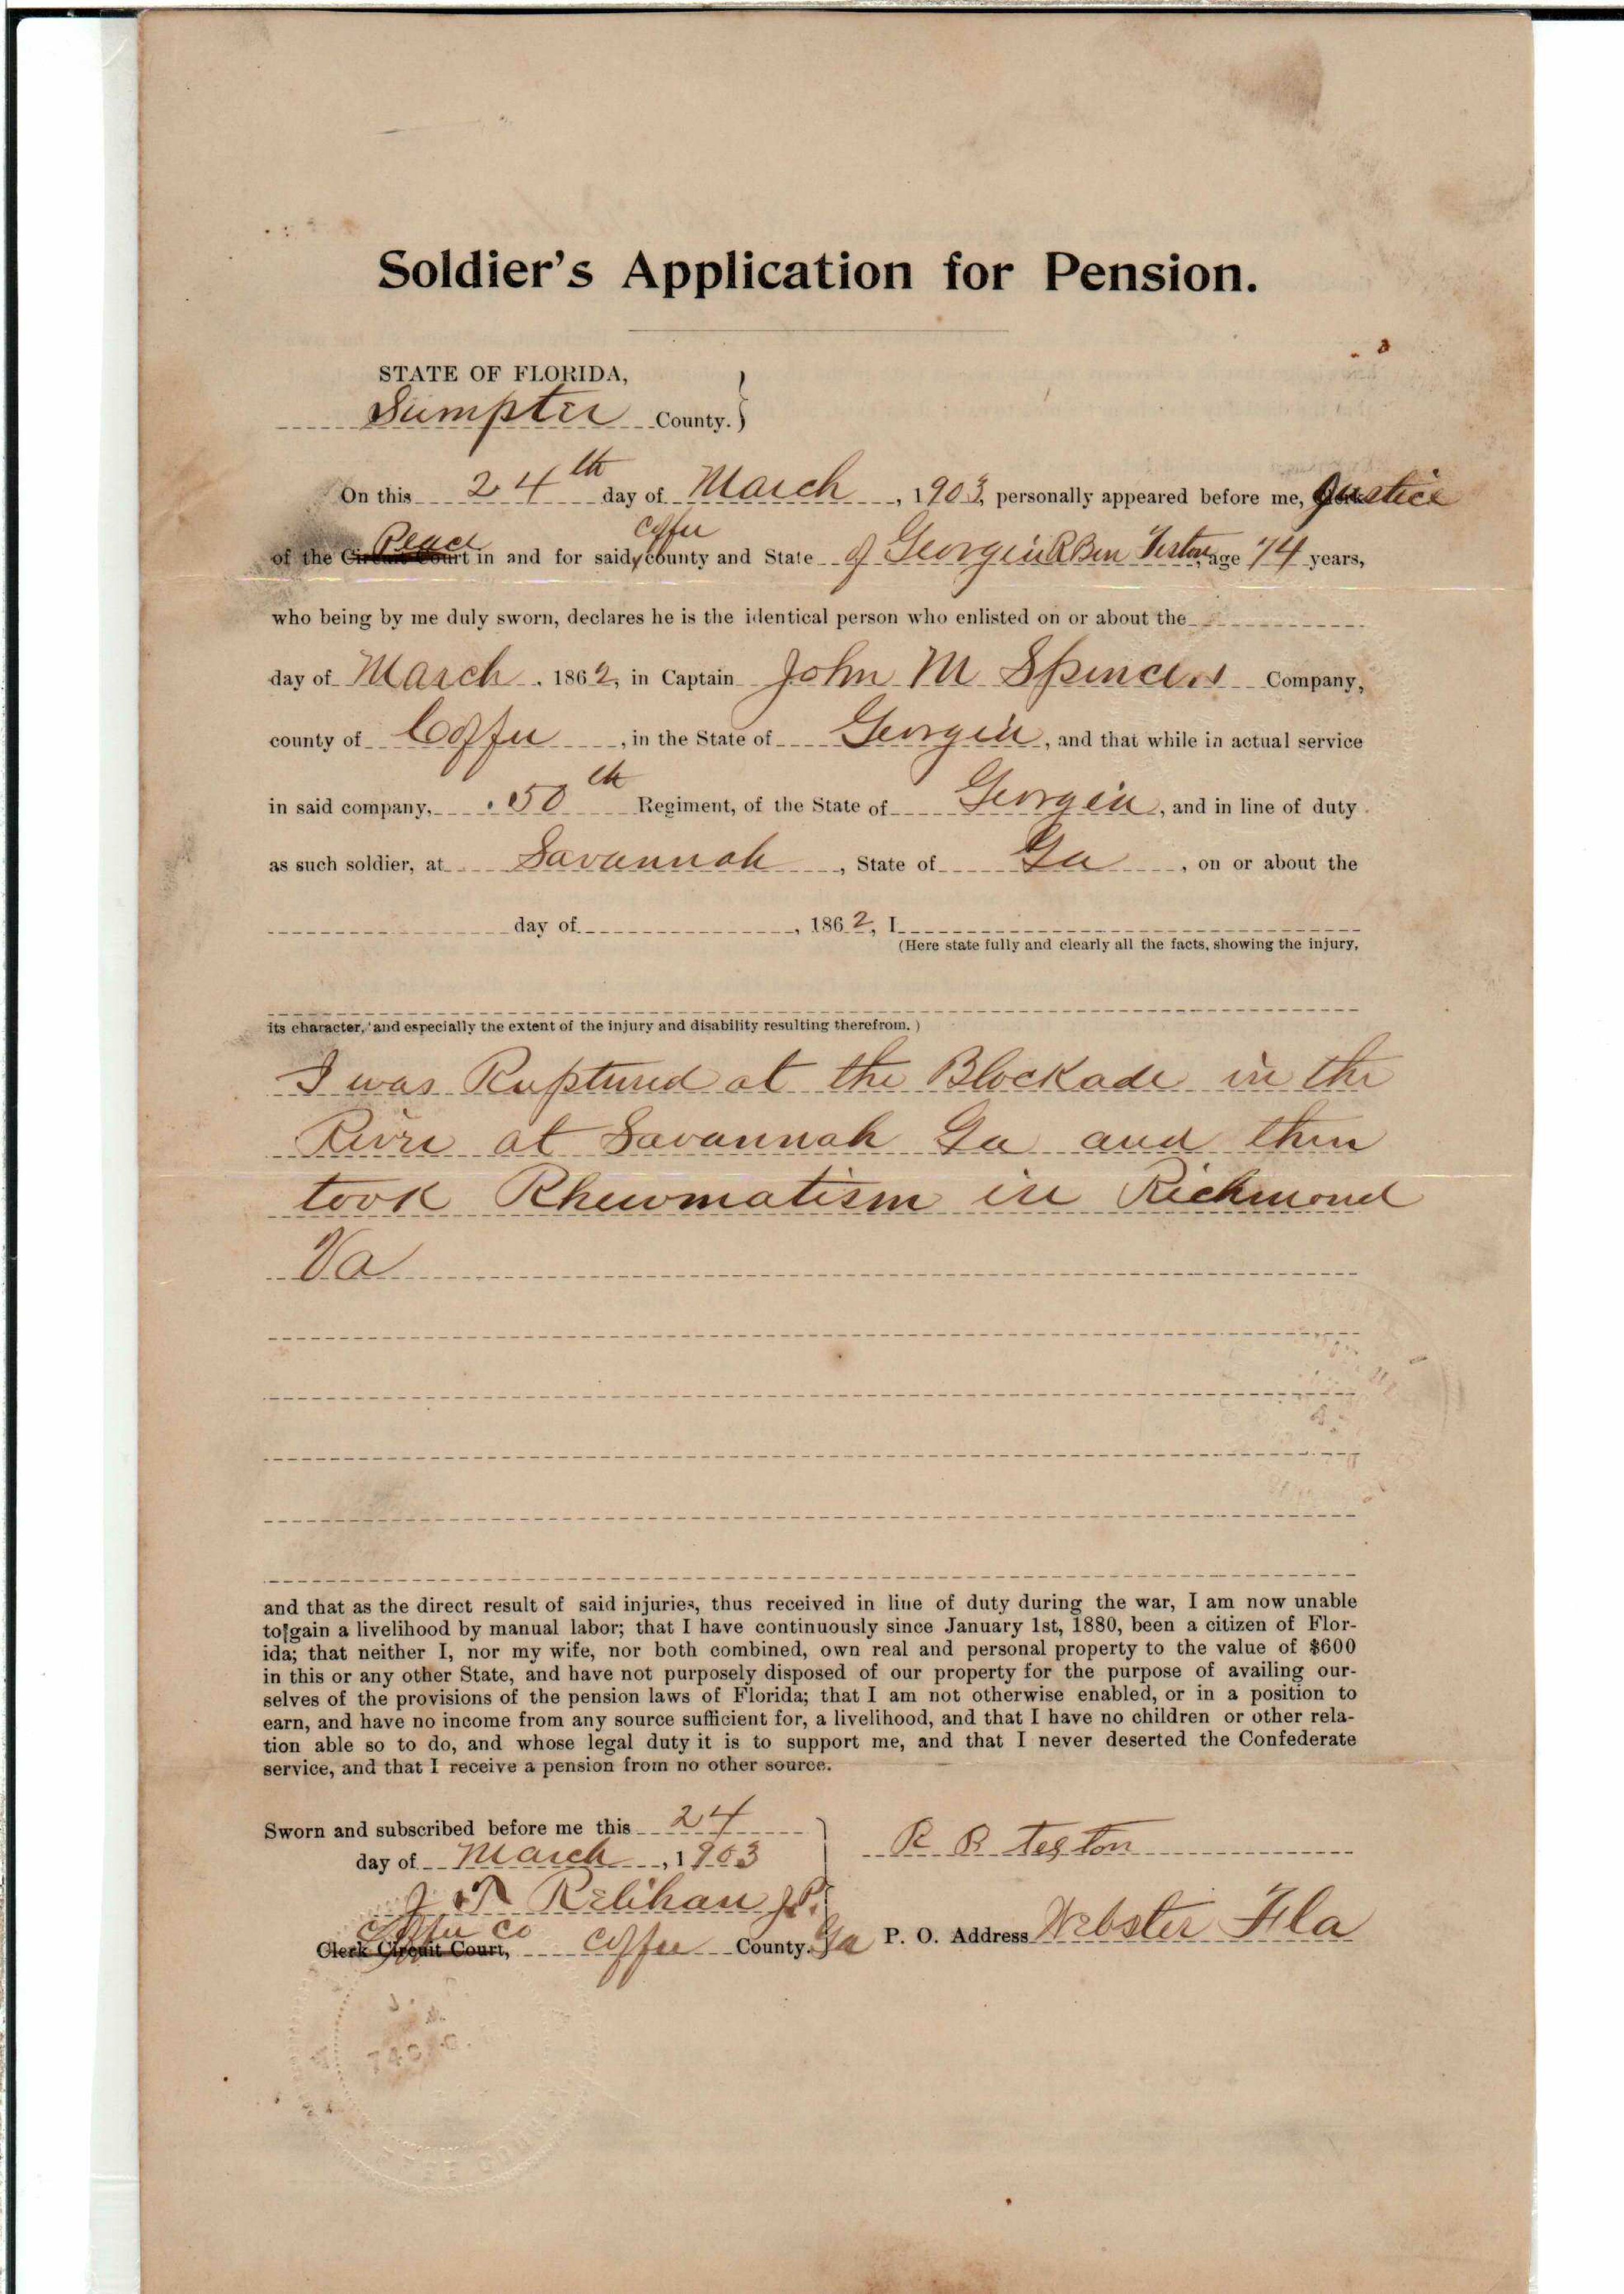 Soldier's Application for Pension.
STATE OF FLORIDA,
Sumpter County.
On this 24th day of March, 1903, personally appeared before me, Justice
of the Peace in and for said Coffee county and State of Georgia R Ben Teston, age 74 years,
who being by me duly sworn, declares he is the identical person who enlisted on or about the
day of March. 1862, in Captain John M Spencers Company,
county of Coffee, in the State of Georgia, and that while in actual service
in said company, 50th Regiment, of the State of Georgia, and in line of duty
as such soldier, at Savannah, State of Ga, on or about the
day of , 1862, I
(Here state fully and clearly all the facts, showing the injury,
its character, and especially the extent of the injury and disability resulting therefrom.)
I was Ruptured at the Blockade in the
River at Savannah Ga and then
took Rheumatism in Richmond
Va
and that as the direct result of said injuries, thus received in line of duty during the war, I am now unable
to gain a livelihood by manual labor; that I have continuously since January 1st, 1880, been a citizen of Flor-
ida; that neither I, nor my wife, nor both combined, own real and personal property to the value of $600
in this or any other State, and have not purposely disposed of our property for the purpose of availing our-
selves of the provisions of the pension laws of Florida; that I am not otherwise enabled, or in a position to
earn, and have no income from any source sufficient for, a livelihood, and that I have no children or other rela-
tion able so to do, and whose legal duty it is to support me, and that I never deserted the Confederate
service, and that I receive a pension from no other source.
Sworn and subscribed before me this 24
day of March, 1903
R B Teston
J T Relihan J.P.
Coffee Co
Clerk Circuit Court, Coffee County. Ga
P. O. Address Webster Fla